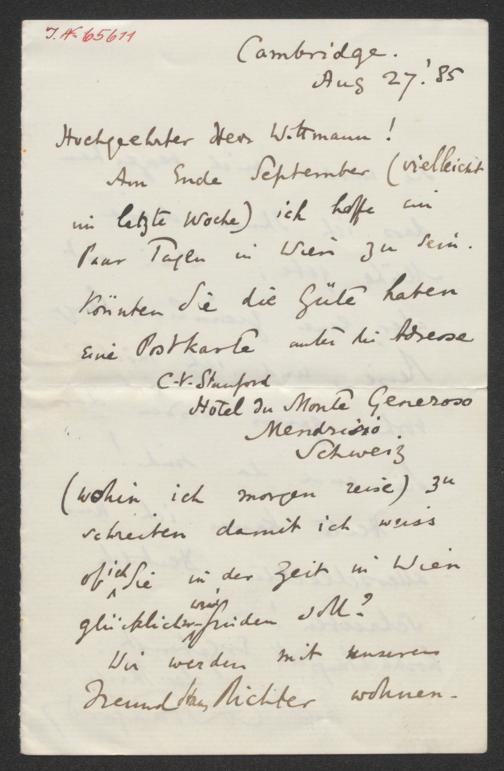 I.N. 65611
Cambridge.
Aug 27. '85
Hochgeehrter Herr Wittmann!
Am Ende September (vielleicht
im letzte Woche) ich hoffe ein
Paar Tagen in Wien zu sein.
Könnten Sie die Güte haben
eine Postkarte unter die Adresse
C.V. Stanford
Hôtel du Monte Generoso
Mendrisio.
Schweiz
(wohin ich morgen reise) zu
schreiben damit ich weiss
ob ich Sie in der Zeit in Wien
glücklicherweise finden soll?
Wir werden mit unserem
Freund Hans Richter wohnen.